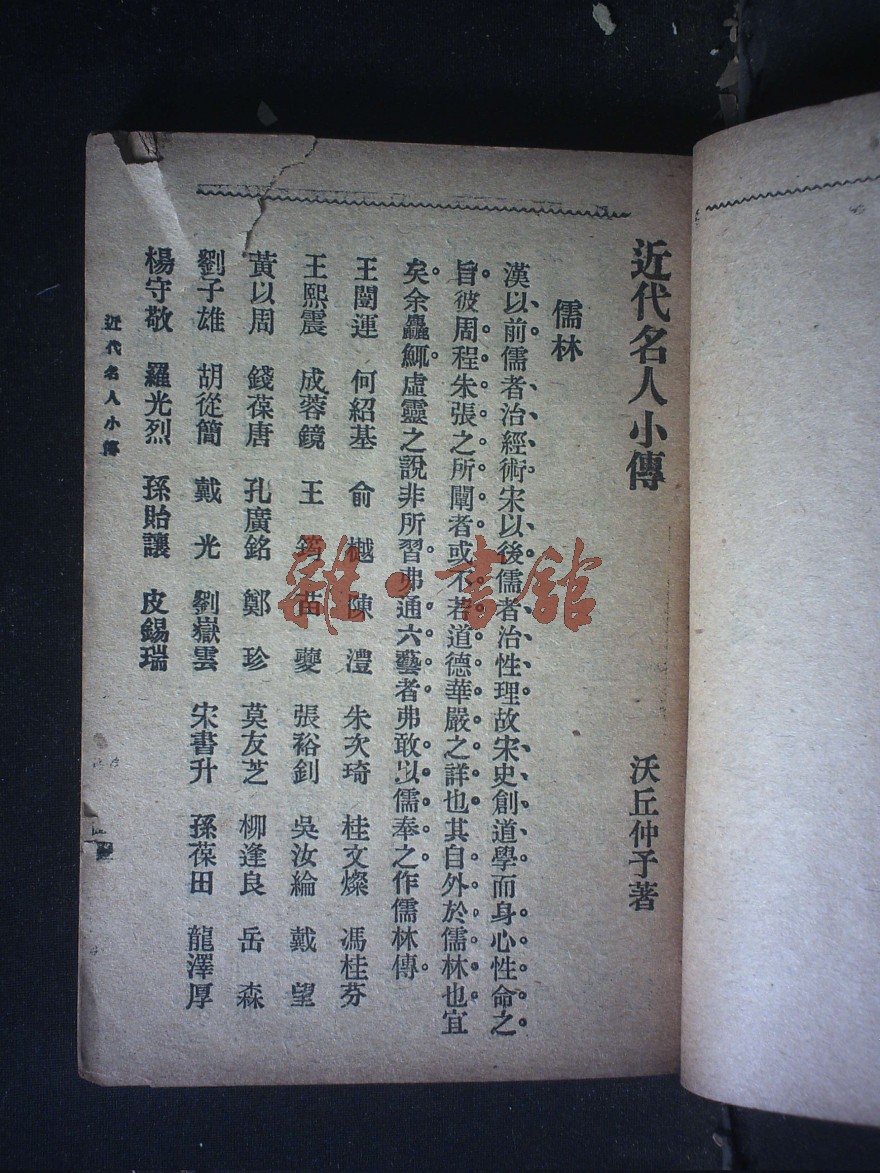 近代名人小傳
沃丘仲子著
儒林
漢以前儒者治經術宋以後儒者治性理故宋史創道學而身心性命之
旨彼周程朱張之所闡者或不若道德華嚴之詳也其自外於儒林也宜
矣余麤觕虛靈之說非所習弗通六藝者弗敢以儒奉之作儒林傳
王闓運 何紹基 俞樾 陳澧 朱次琦 桂文燦 馮桂芬
王熙震 成蓉鏡 王筠 苗夔 張裕釗 吳汝綸 戴望
黃以周 錢葆唐 孔廣銘 鄭珍 莫友芝 柳逢良 岳森
劉子雄 胡從簡 戴光 劉嶽雲 宋書升 孫葆田 龍澤厚
楊守敬 羅光烈 孫貽讓 皮錫瑞
近代名人小傳
雜·書館